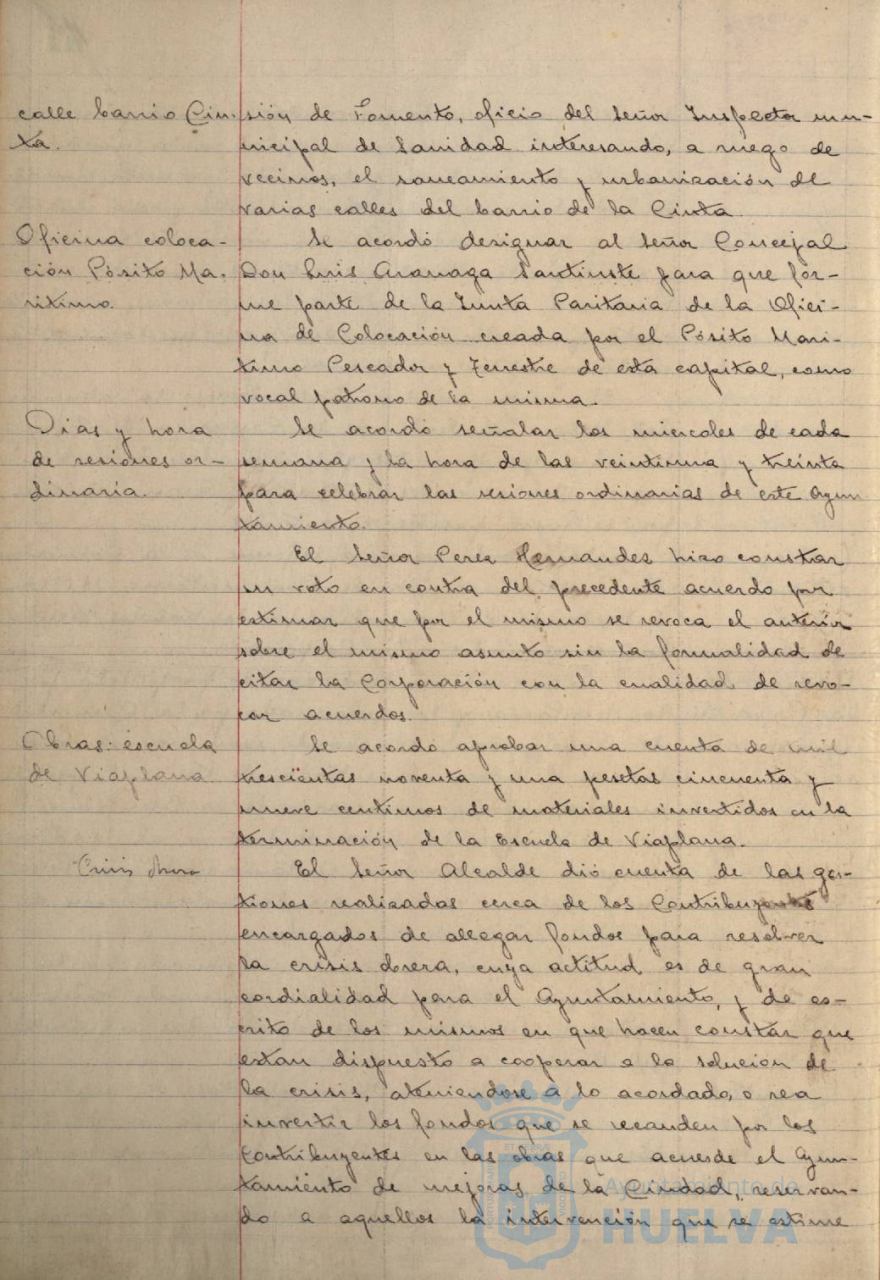 calle barrio Cin-
ta.
sión de Fomento, oficio del Señor Inspector mu-
nicipal de Sanidad interesando, a ruego de
vecinos, el saneamiento y urbanización de
varias calles del barrio de la Cinta.
Oficina coloca-
ción Pósito Ma-
rítimo.
Se acordó designar al Señor Concejal
Don Luis Aranaga Santiuste para que for-
me parte de la Junta Paritaria de la Ofici-
na de Colocación creada por el Pósito Mari-
timo Pescador y Terrestre de esta capital, como
vocal patrono de la misma.
Dias y hora
de sesiones or-
dinaria.
Se acordó señalar los miercoles de cada
semana y la hora de las veintiuna y treinta
para celebrar las sesiones ordinarias de este Ayun
tamiento.
El Señor Perez Hernandes hizo constrar
su voto en contra del precedente acuerdo por
estimar que por el mismo se revoca el anterior
sobre el mismo asunto sin la formalidad de
citar la Corporación con la cualidad de revo-
car acuerdos.
Obras: escuela
de Viaplana.
Se acordó aprobar una cuenta de mil
trescientas noventa y una pesetas cincuenta y
nueve centimos de materiales invertidos en la
terminación de la Escuela de Viaplana.
Crisis obrera
El Señor Alcalde dió cuenta de las ges-
tiones realizadas cerca de los Contribuyentes
encargados de allegar fondos para resolver
la crisis obrera, cuya actitud es de gran
cordialidad para el Ayuntamiento, y de es-
crito de los mismos en que hacen constar que
estan dispuesto a cooperar a la solución de
la crisis, ateniendose a lo acordado, o sea
invertir los fondos que se recauden por los
Contribuyentes en las obras que acuerde el Ayun-
tamiento de mejoras de la Ciudad, reservan-
do a aquellos la intervención que se estime
Ayuntamiento de
HUELVA